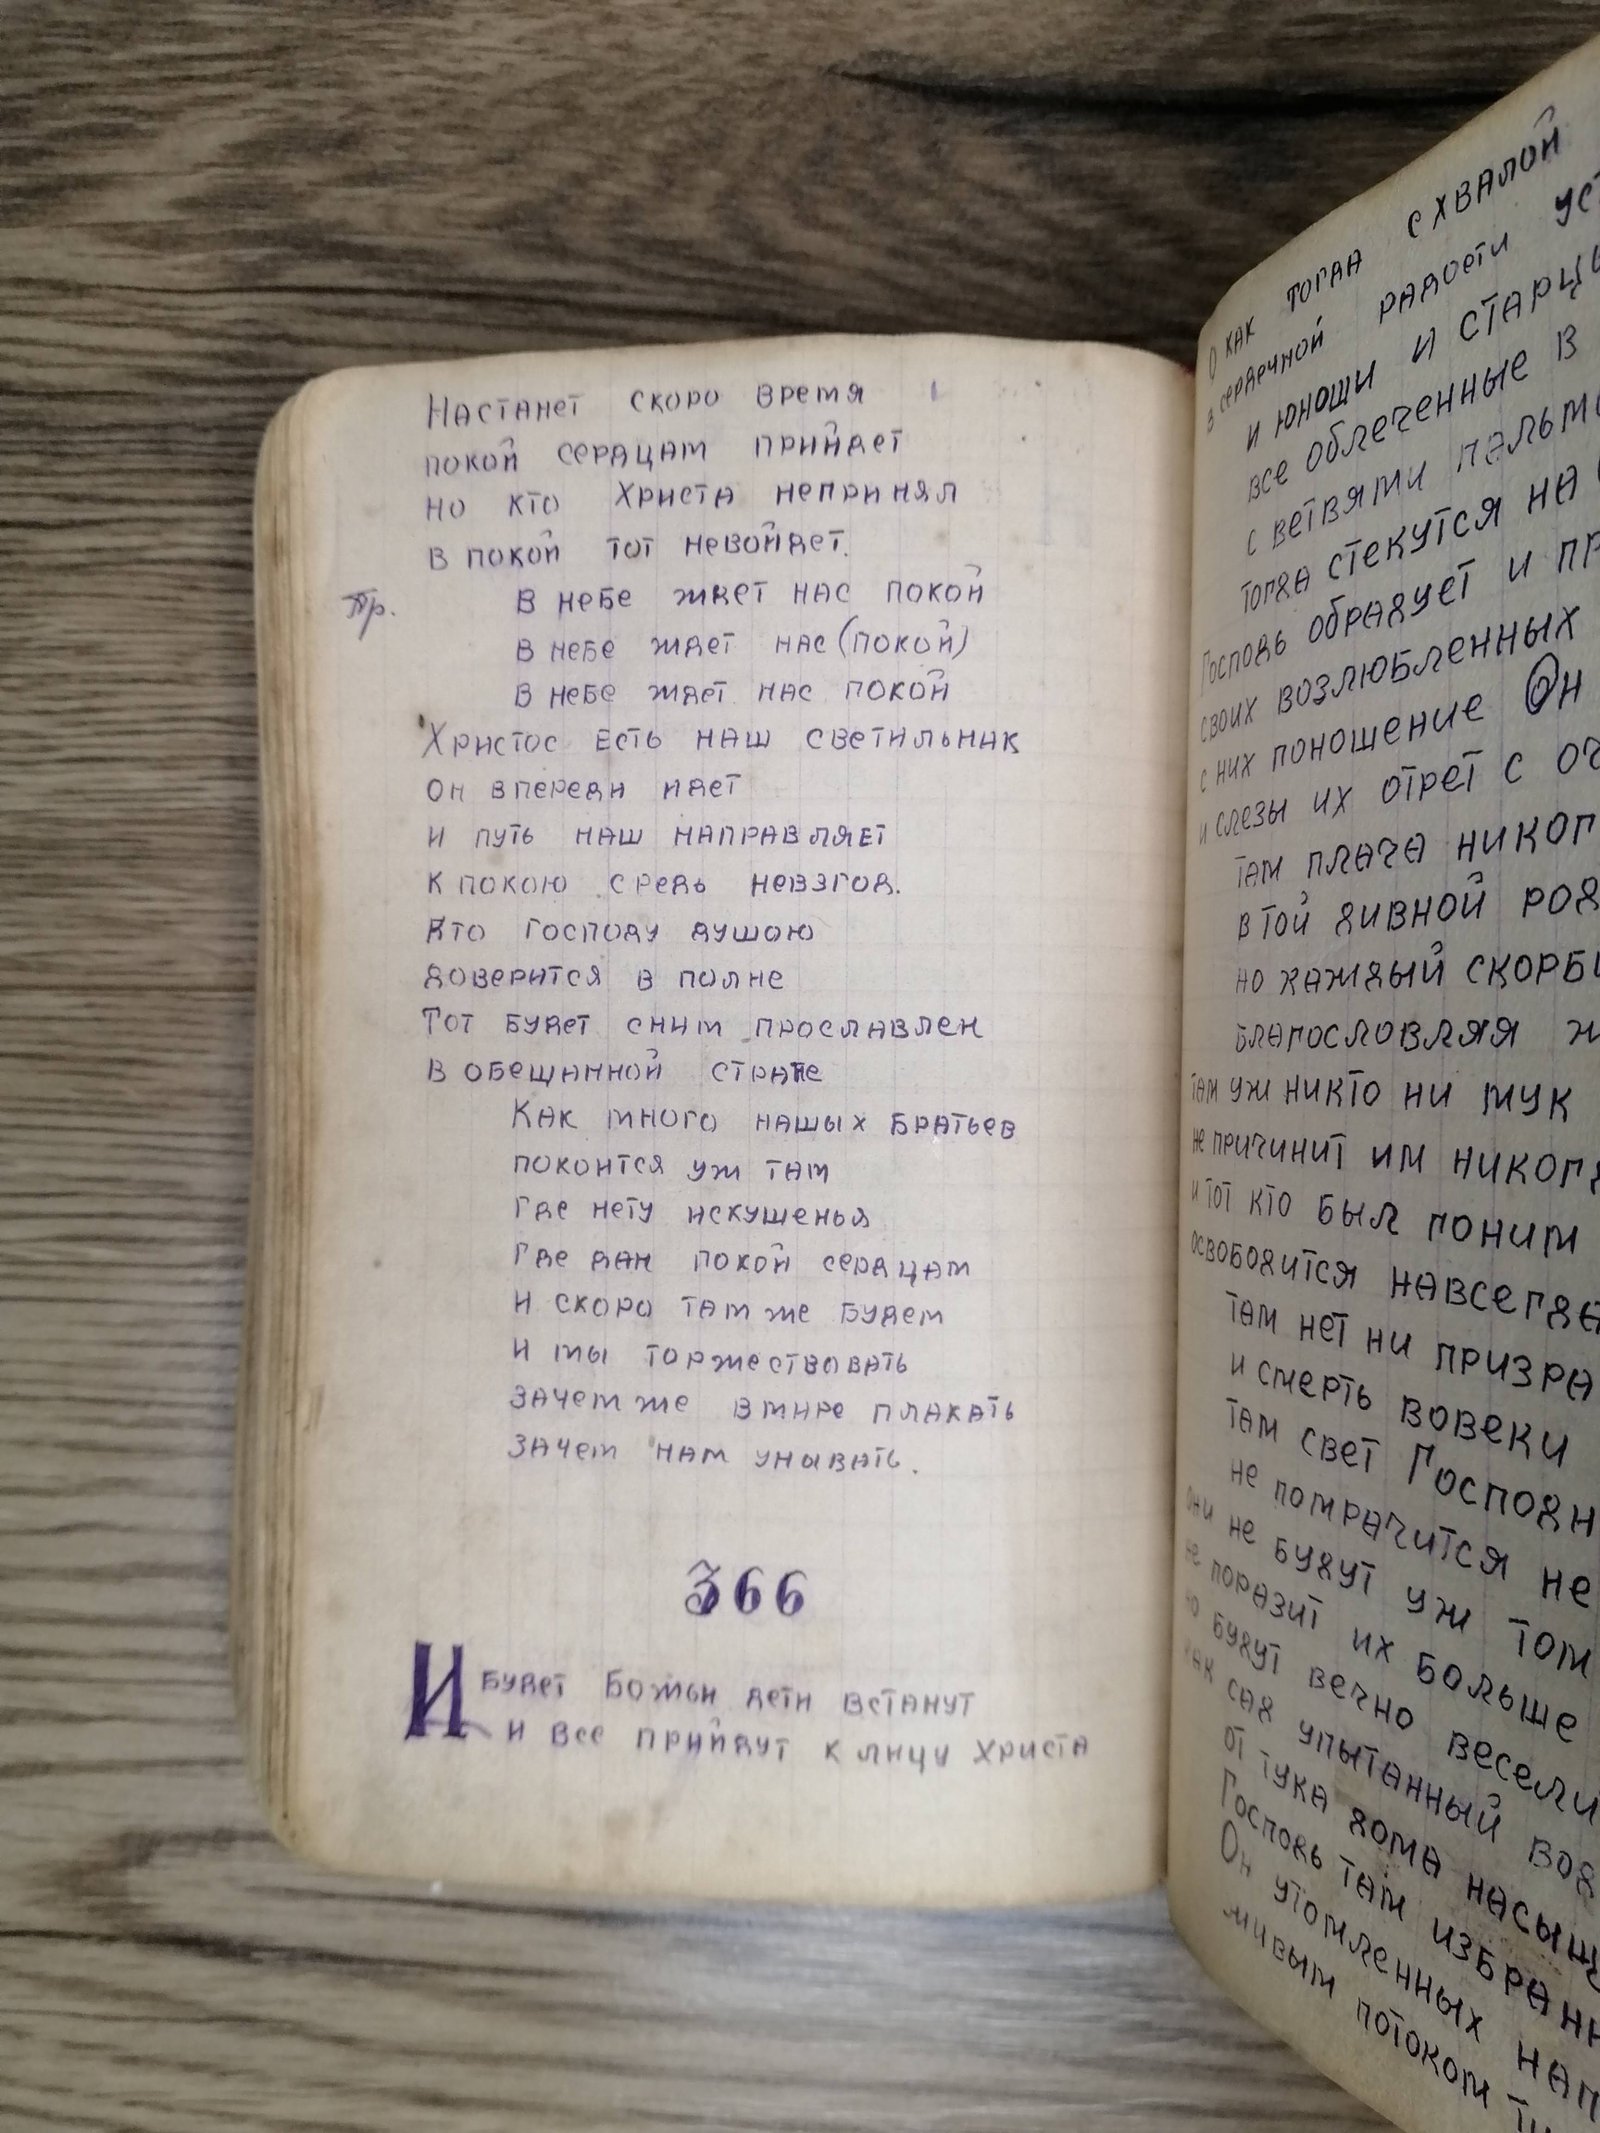 Настанет скоро время
покой сердцам прийдет
но кто Христа непринял
в покой тот невойдет.
Пр. В небе ждет нас покой
В небе ждет нас (покой)
В небе ждет нас покой
Христос есть наш светильник
Он впереди идет
и путь наш направляет
к покою средь невзгод.
Кто Господу душою
доверится в полне
Тот будет сним прославлен
В обещанной стране
Как много нашых братьев
покоится уж там
Где нету искушенья
Где дан покой сердцам
И скоро там же будем
И мы торжествовать
Зачем же вмире плакать
Зачем нам унывать.
366
И будет Божьи дети встанут
и все прийдут к лицу Христа
О как тогда с хвалой
в сердечной радости
и юноши и старцы
все облеченные в
с ветвями
тогда стекутся на
Господь обрадует и
своих возлюбленных
с них поношение Он
и слезы их отрет с
там плача
в той дивной
но каждый
благословляя
там уж никто ни мук
не причинит им
и тот кто был гоним
освободится навсегда
там нет ни
и смерть вовеки
там свет
не помрачится не
они не будут уж
не поразит их больше
но будут вечно
как сад упытанный
от тука дома
Господь там
Он утомленных
живым потоком